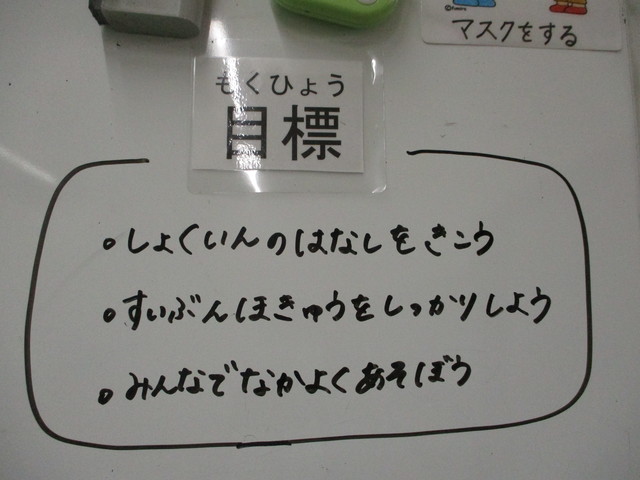 マスクをする
もくひょう
目標
。しょくいんのはなしをきこう
。すいぶんほきゅうをしっかりしよう
。みんなでなかよくあそぼう